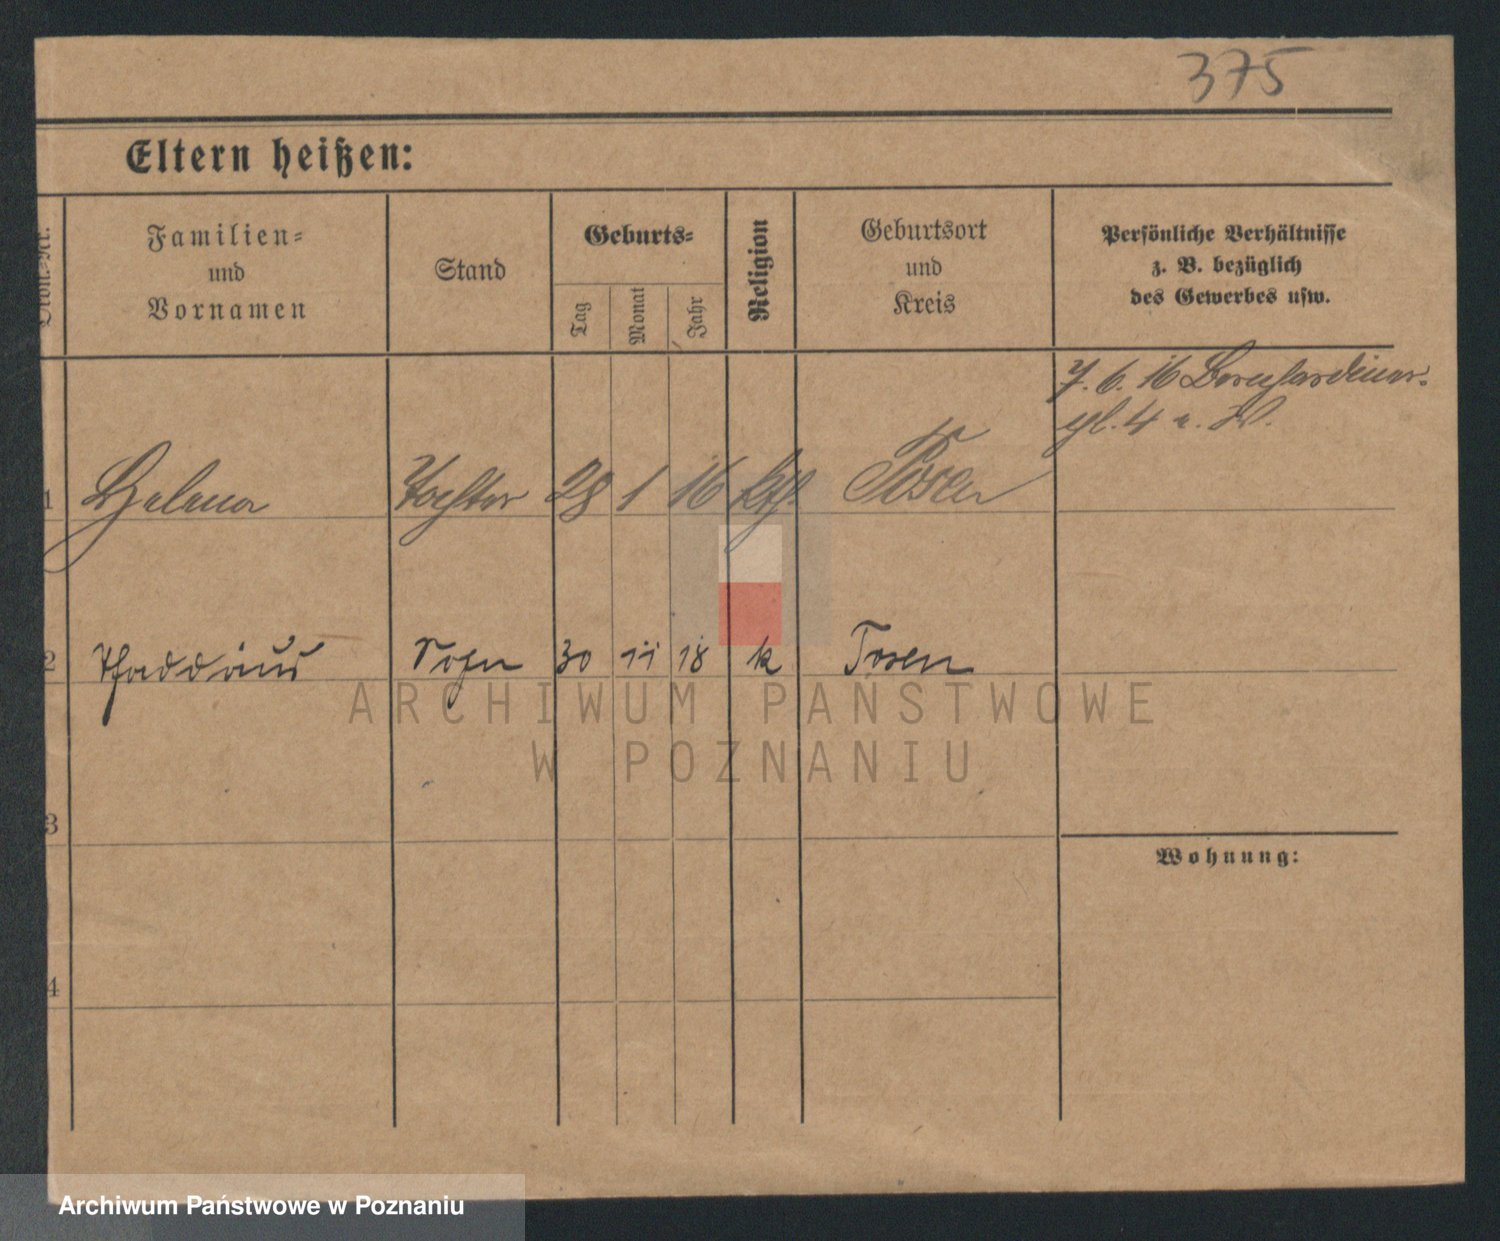 375
Eltern heißen:
Familien-
und
Vornamen
Stand
Geburts-
Tag
Monat
Jahr
Religion
Geburtsort
und
Kreis
Persönliche Verhältnisse
z. B. bezüglich
des Gewerbes usw.
7. 6. 16 Bernhardiner-
pl. 4 a. W.
1 Helena Tochter 28 1 16 kth. Posen
2 Thaddäus Sohn 30 11 18 k Posen
ARCHIWUM PAŃSTWOWE
W POZNANIU
3
Wohnung:
4
Archiwum Państwowe w Poznaniu